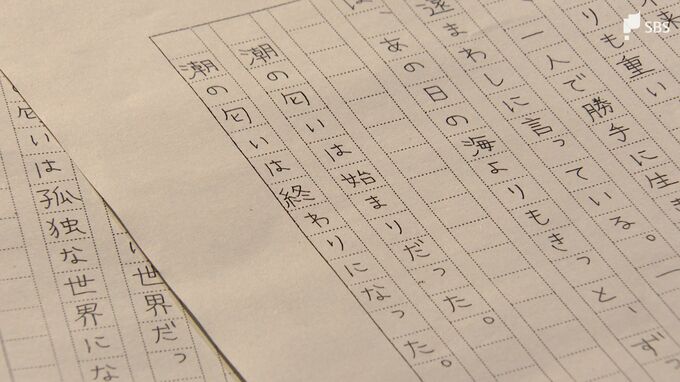 りも重い
一人で勝手に生き
遠まわしに言っている。一
あの日の海よりもきっと、ずっ
は、
潮の匂いは始まりだった。
潮の匂いは終わりになった。
は世界だっ
の匂いは孤独な世界にな
SBS